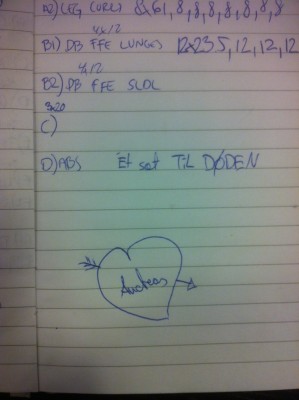 A2) LEG CURLS 8x61, 8, 8, 8, 8, 8, 8, 8
4x12
B1) DB FFE LUNGES 12x235, 12, 12, 12
4x12
B2) DB FFE SLDL
3x20
C)
D) ABS Et set TIL DØDEN
Andreas